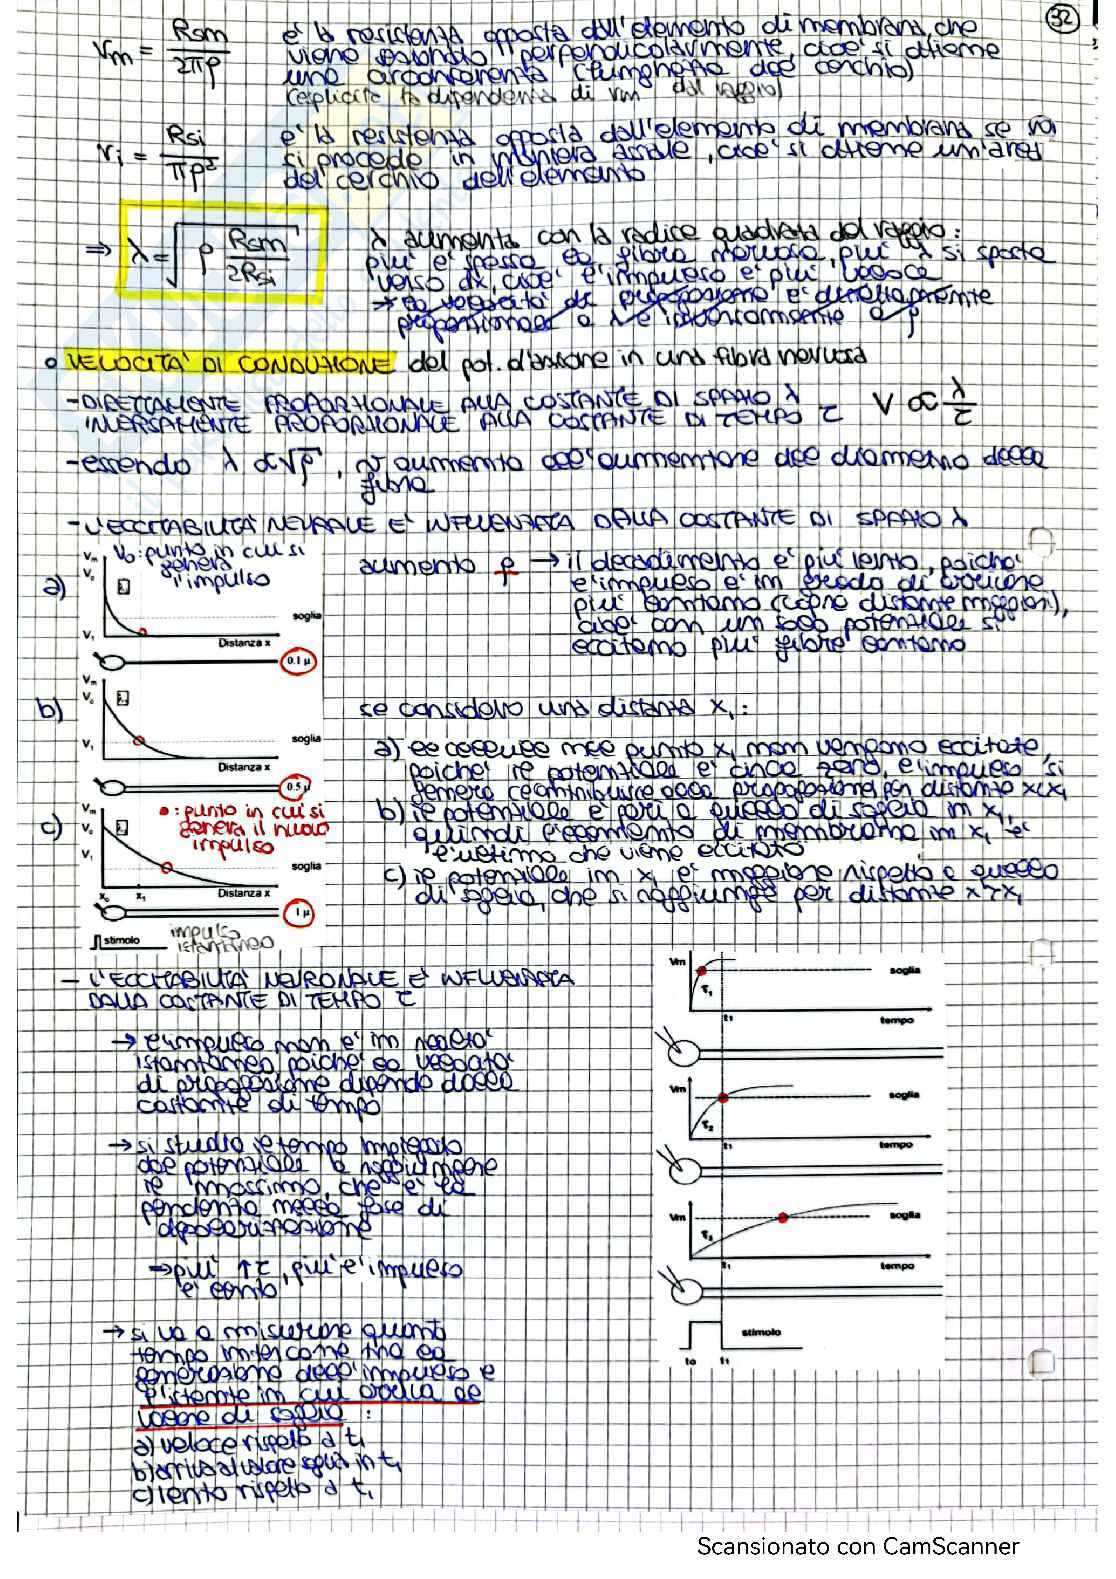 32
rm = Rsm / 2πρ è la resistenza opposta dall'elemento di membrana, che
viene sezionato perpendicolarmente, cioè si ottiene
una circonferenza (lunghezza del cerchio)
(esplicita la dipendenza di rm dal raggio)
ri = Rsi / πρ² è la resistenza opposta dall'elemento di membrana se
si procede in maniera assiale, cioè si ottiene un'area
del cerchio dell'elemento
⇒ λ = √(ρ Rsm / 2Rsi) λ aumenta con la radice quadrata del raggio:
più è spessa la fibra nervosa, più λ si sposta
verso dx, cioè l'impulso è più veloce
→ la velocità di propagazione è direttamente
proporzionale a λ e inversamente a ρ
VELOCITA' DI CONDUZIONE del pot. d'azione in una fibra nervosa
- DIRETTAMENTE PROPORZIONALE ALLA COSTANTE DI SPAZIO λ
INVERSAMENTE PROPORZIONALE ALLA COSTANTE DI TEMPO τ V ∝ λ/τ
- essendo λ ∝ √ρ, v aumenta all'aumentare del diametro della
fibra
- L'ECCITABILITA' NEURALE E' INFLUENZATA DALLA COSTANTE DI SPAZIO λ
V₀: punto in cui si
genera
l'impulso
a)
Vm
V₀
soglia
V₁
Distanza x
0.1 μ
aumento ρ → il decadimento è più lento, poiché
l'impulso è in grado di arrivare
più lontano (copre distanze maggiori),
cioè con un solo potenziale si
eccitano più fibre lontano
b)
Vm
V₀
soglia
V₁
Distanza x
0.5 μ
se considero una distanza x₁:
a) le cellule nel punto x₁ non vengono eccitate,
poiché il potenziale è circa zero, l'impulso si
genera contribuisce alla propagazione per distanze x<x₁
b) il potenziale è pari a quello di soglia in x₁,
quindi l'elemento di membrana in x₁ è
l'ultimo che viene eccitato
c) il potenziale in x₁ è maggiore rispetto a quello
di soglia, che si raggiunge per distanze x>x₁
c)
Vm
V₀
V₁
•: punto in cui si
genera il nuovo
impulso
soglia
x₀ x₁ Distanza x
1 μ
stimolo
impulso
istantaneo
- L'ECCITABILITA' NEURONALE E' INFLUENZATA
DALLA COSTANTE DI TEMPO τ
→ l'impulso non è in realtà
istantaneo poiché la velocità
di propagazione dipende dalla
costante di tempo
→ si studia il tempo impiegato
dal potenziale a raggiungere
il massimo, che è la
pendenza nella fase di
depolarizzazione
→ più ↑τ, più l'impulso
è lento
→ si va a misurare quanto
tempo intercorre tra la
generazione dell'impulso e
l'istante in cui arriva al
valore di soglia:
a) veloce rispetto a t₁
b) arriva al valore soglia in t₁
c) lento rispetto a t₁
Vm
soglia
τ₁
t₁
tempo
Vm
soglia
τ₂
t₁
tempo
Vm
soglia
τ₃
t₁
tempo
stimolo
t₀ t₁
Scansionato con CamScanner